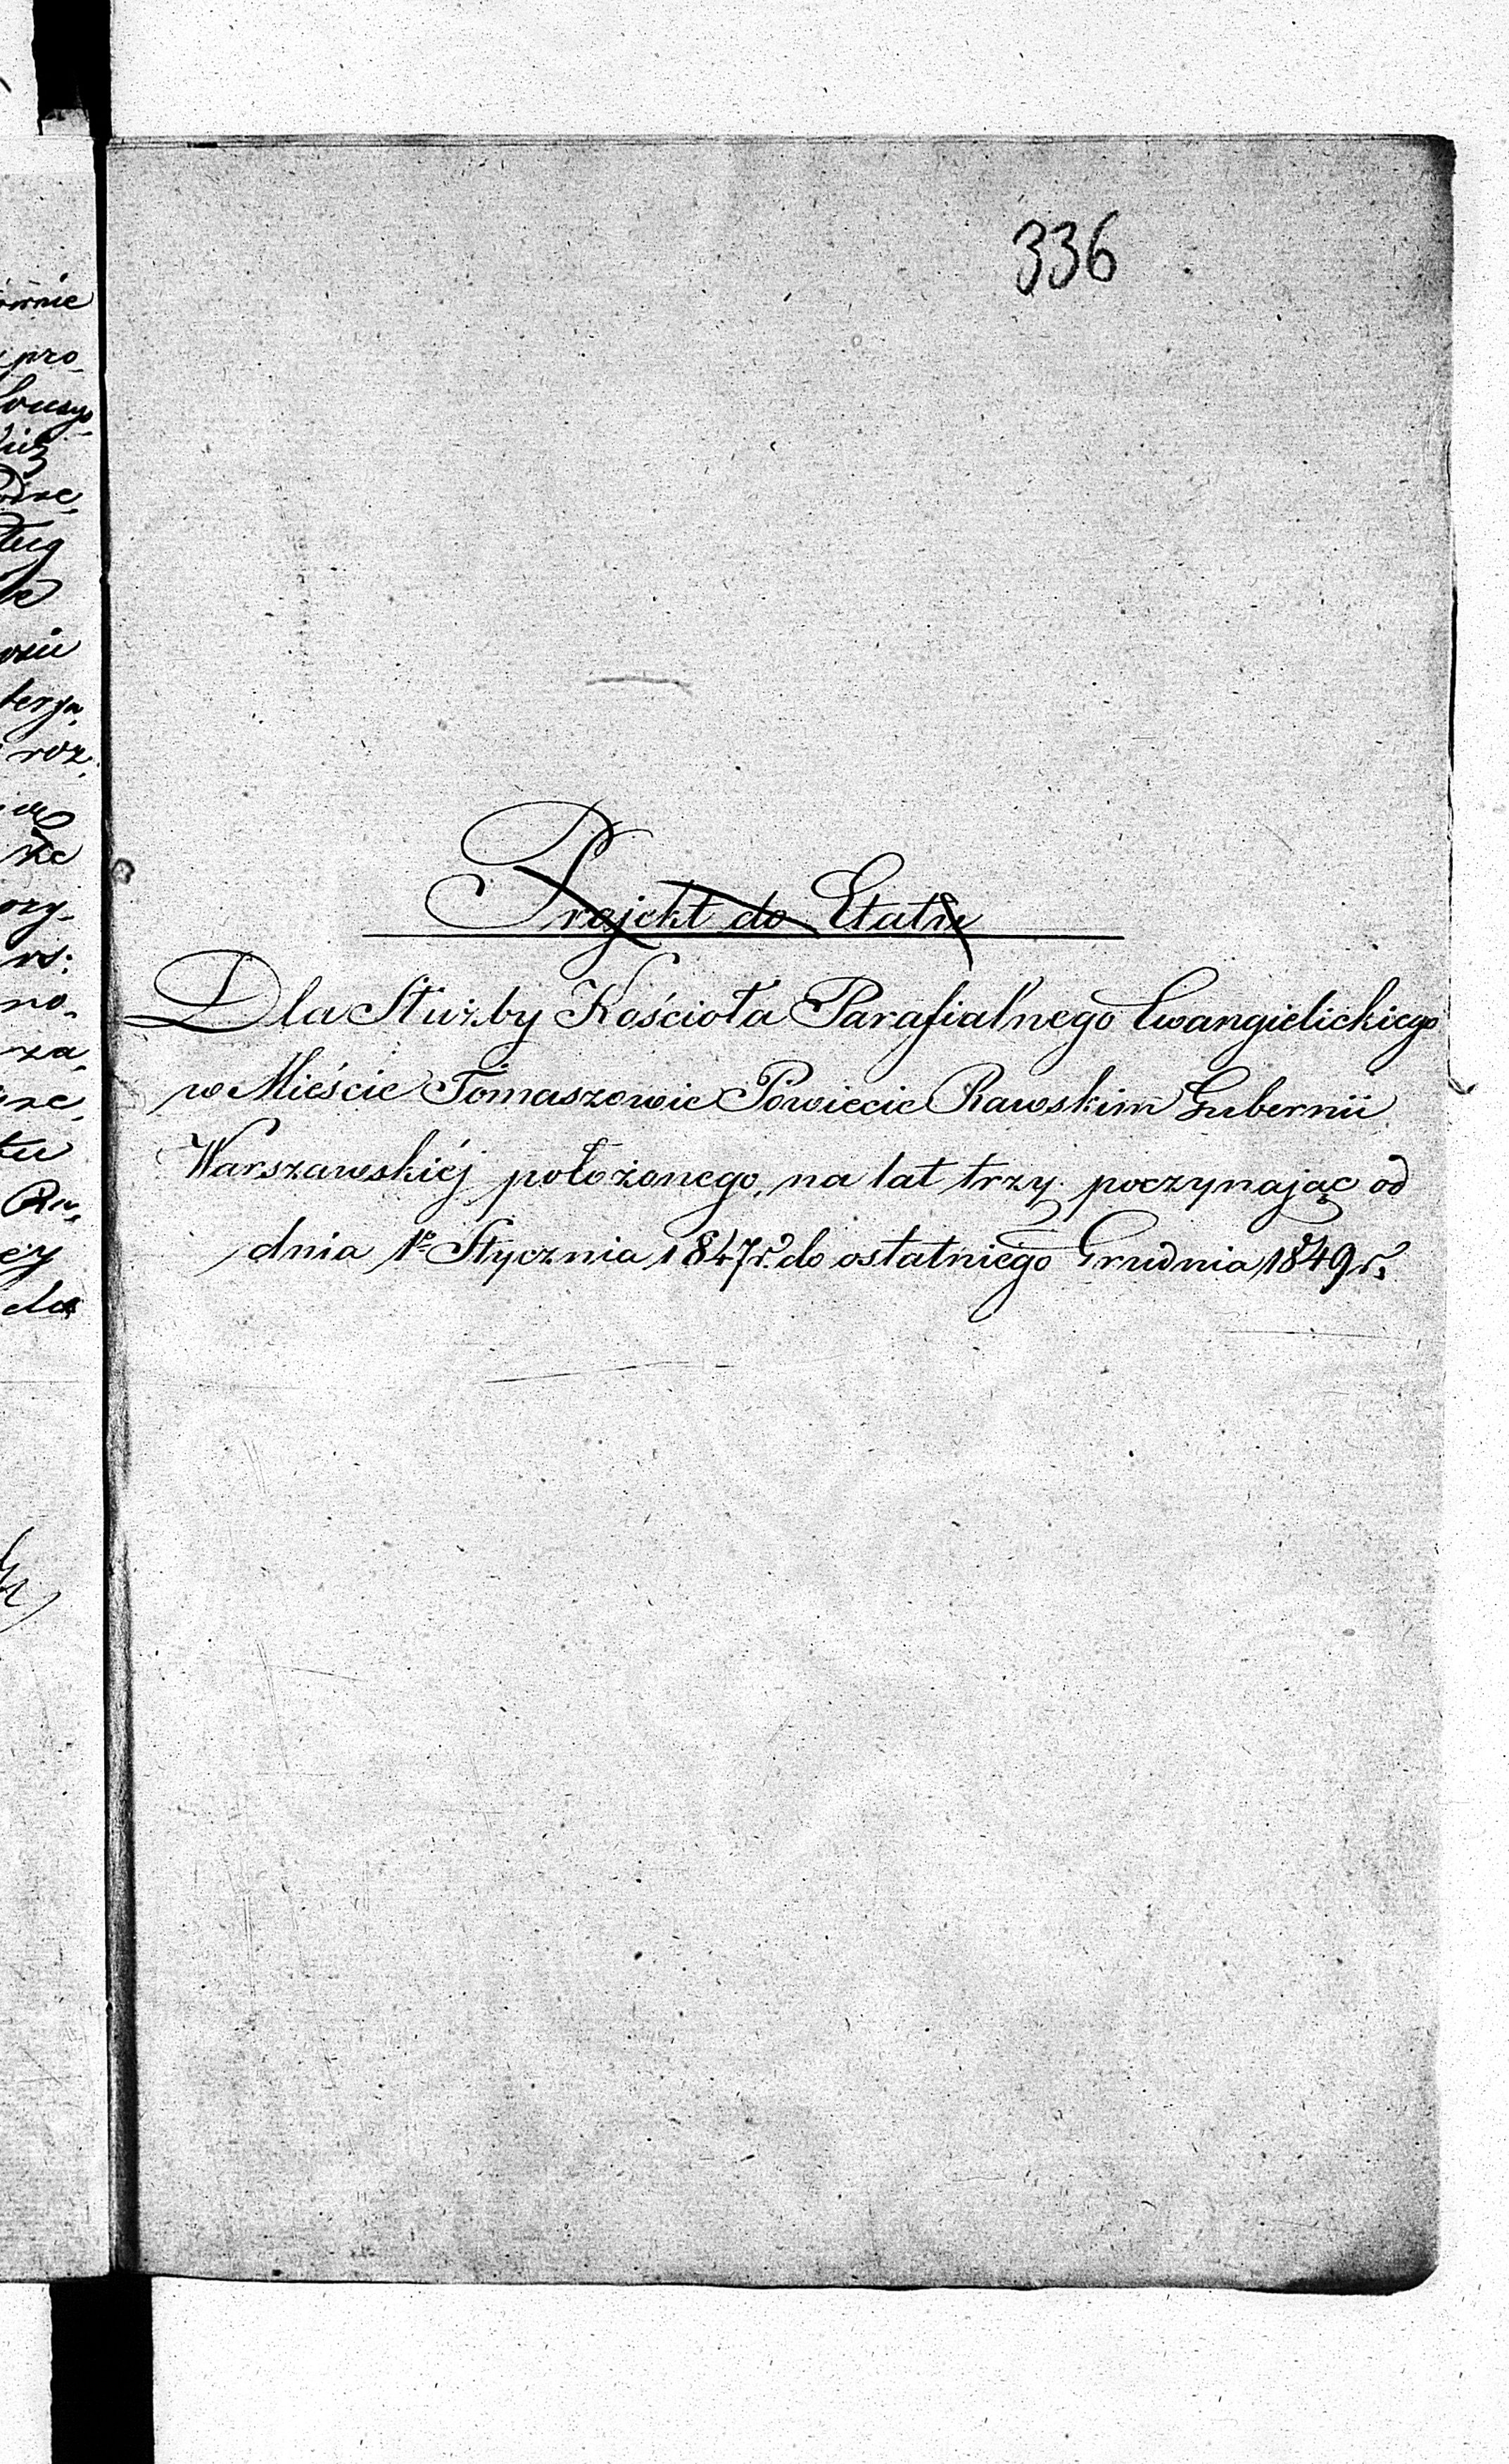 336
Projekt do Etatu
Dla Służby Kościoła Parafialnego Ewangielickiego
w Mieście Tomaszowie Powiecie Rawskim Gubernii
Warszawskiéj położonego, na lat trzy poczynając od
dnia 1º Stycznia 1847 r. do ostatniego Grudnia 1849 r.
ownie
pro_
ług
oże
roz_
że
ory_
no_
za_
tu
ey